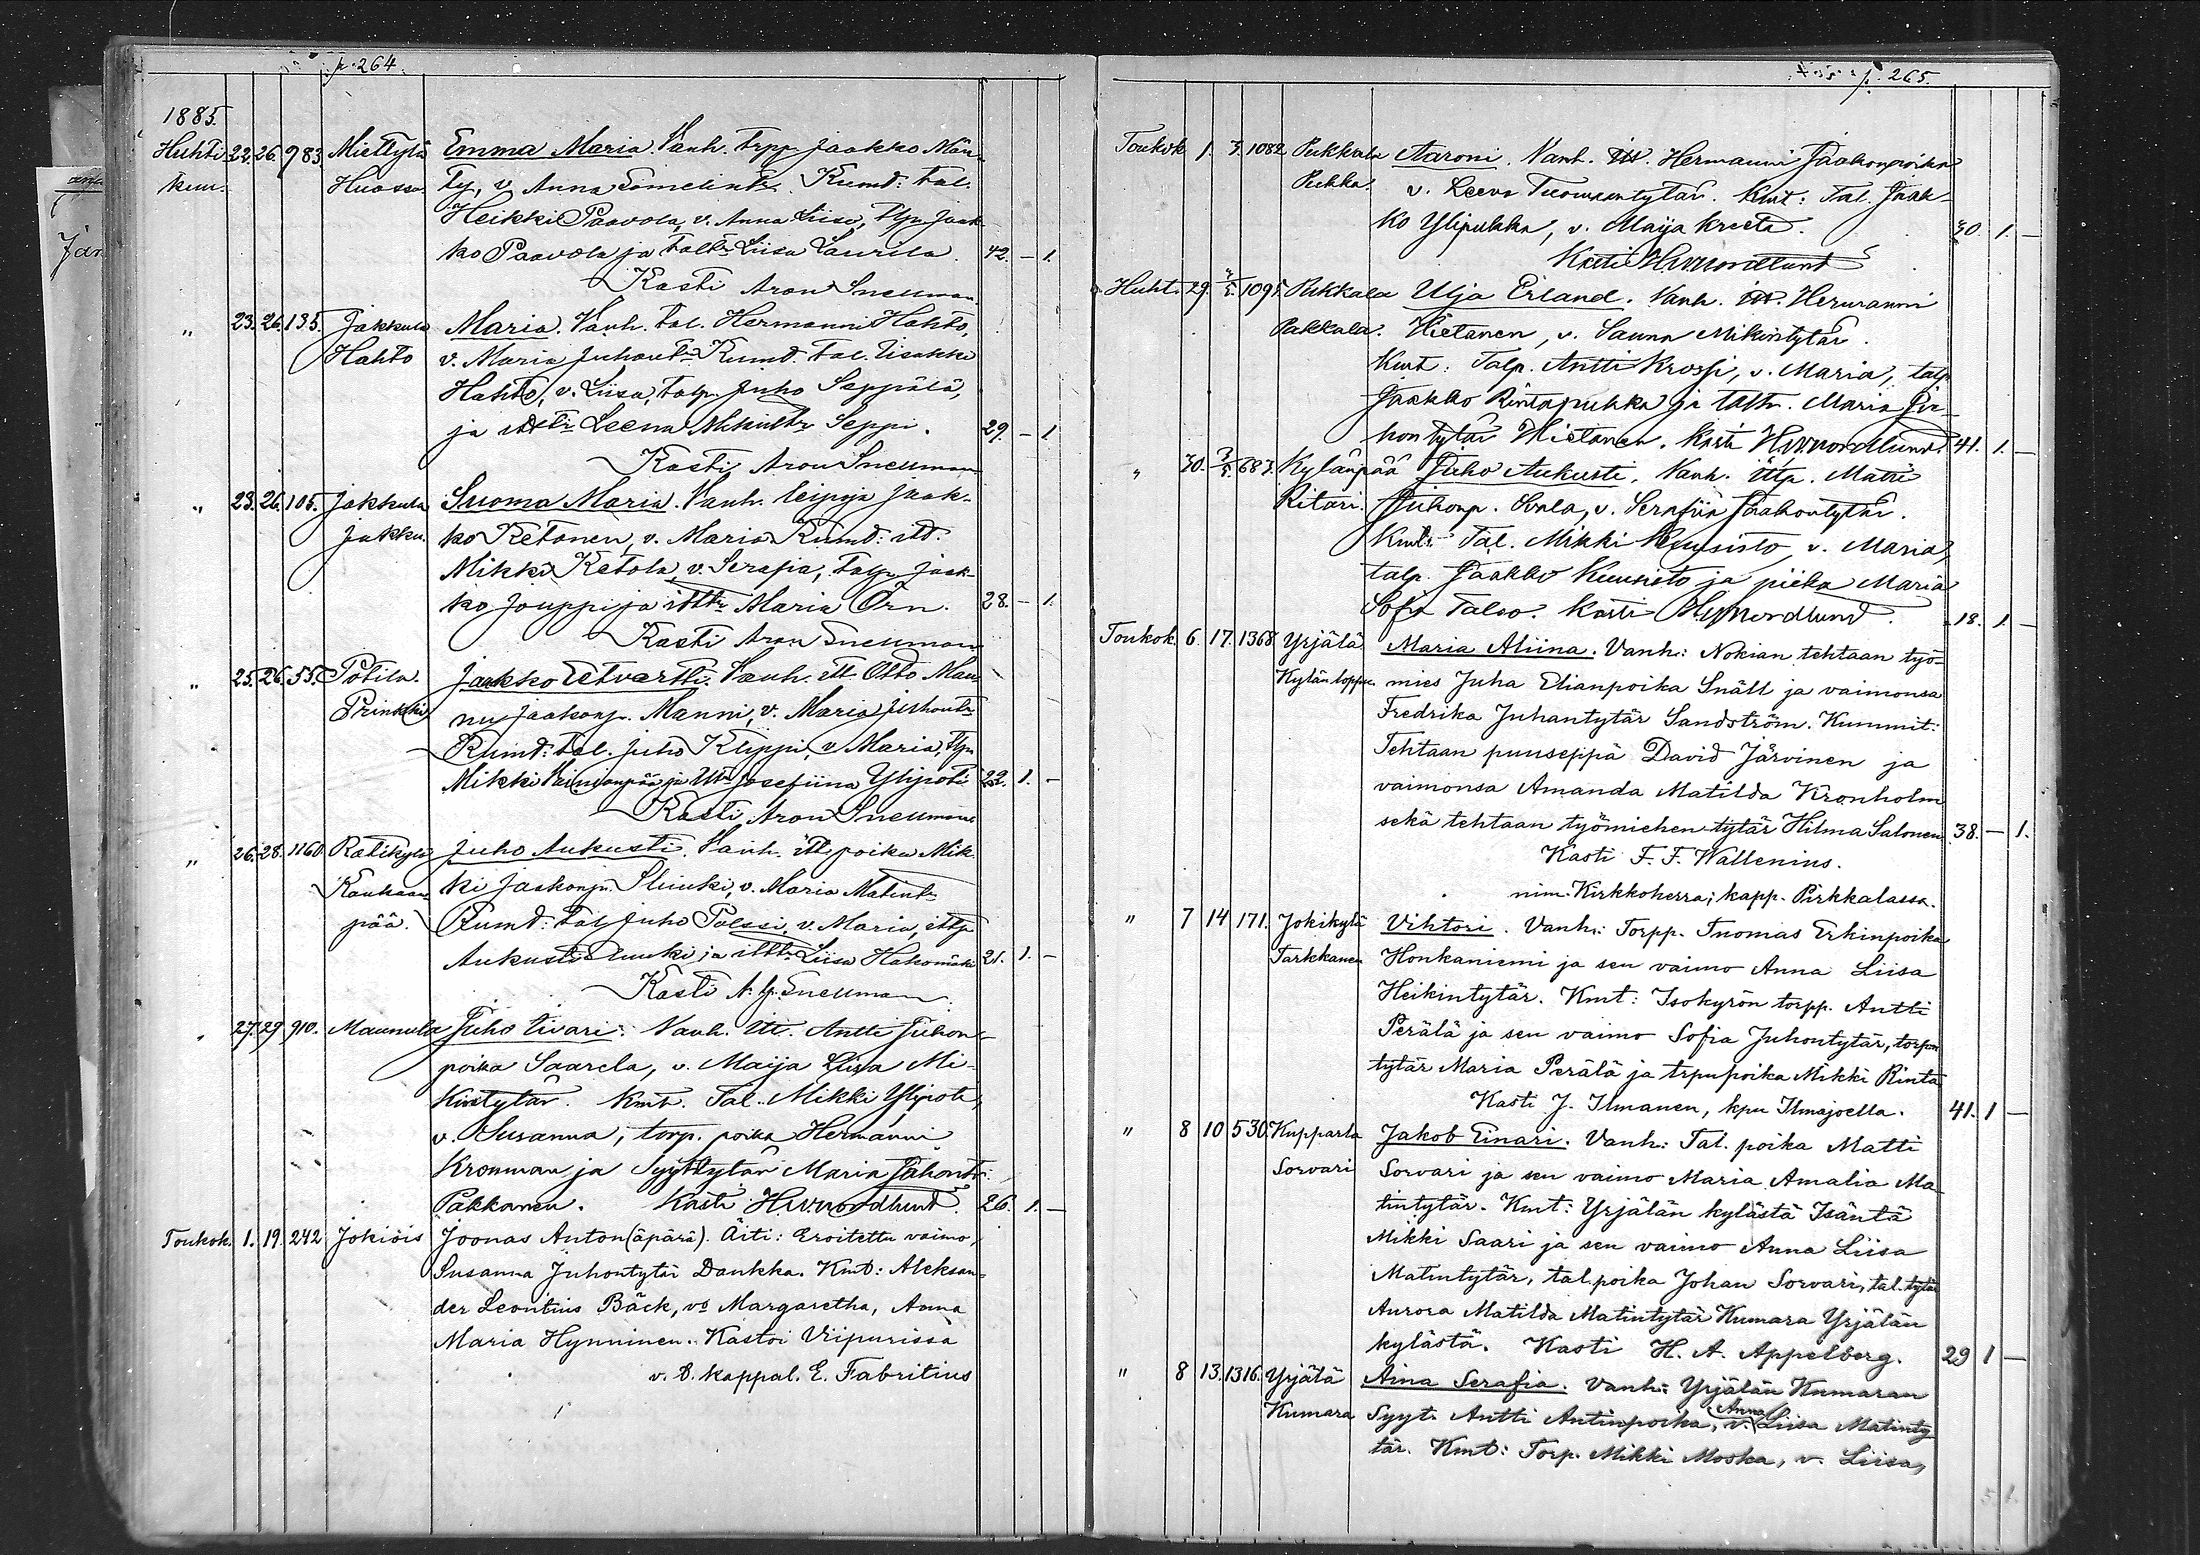 p. 264
1885.
Huhti- 22. 26. 983 Miettylä Emma Maria. Vanh. trpp. Jaakko Män-
kuu. Huossa. ty, v. Anna Eomelintr. Kumd: tal.
Heikki Paavola, v. Anna Liisa, tlp. Jaak-
ko Paavola ja taltr. Liisa Laurila. 42. – 1.
Kasti Aron Snellman.
" 23. 26. 135. Jakkula Maria. Vanh. tal. Hermanni Hahto,
Hahto v. Maria Juhontr. Kumd. tal. Iisakki
Hahto, v. Liisa, talp. Juho Seppälä,
ja ittr. Leena Mikintr. Seppi. 29. – 1
Kasti Aron Snellman
" 23. 26. 105. Jakkula Suoma Maria. Vanh. leipoja Jaak-
Jakku. ko Ketonen, v. Maria. Kumd: itd.
Mikki Ketola, v. Serafia, talp. Jaak-
ko Jouppi ja itttr. Maria Örn. 28. – 1.
Kasti Aron Snellman
" 25. 26. 55. Potila Jaakko Etvartti. Vanh. itt. Otto Man-
Prinkki nu Jaakonp. Manni, v. Maria Juhontr.
Kumd: tal. Juho Klippi, v. Maria, tlp.
Mikki ja Josefiina Ylipoti 22. 1. –
Kasti Aron Snellman
" 26. 28. 1160 Ratikylä Juho Aukusti. Vanh. itt. poika Mik-
Kauhaan- ki Jaakonp. Sluuki, v. Maria Matintr.
pää. Kumd: tal. Juho Polssi, v. Maria, ittp.
Aukusti Sluuki ja itttr. Liisa Hakomäki 21. 1. –
Kasti A. G. Snellman.
" 27. 29. 910. Maunula Juho Iivari. Vanh. Itt. Antti Juhon-
poika Saarela, v. Maija Liisa Mi-
kintytär. Kmt. Tal. Mikki Ylipoti,
v. Susanna, torp. poika Hermanni
Kronman ja Syyttytär Maria Juhontr.
Pakkanen. Kasti HWNordlund. 26. 1. –
Toukok. 1. 19. 242 Jokiöis Joonas Anton (äpärä). Äiti: Eroitettu vaimo,
Susanna Juhontytär Dankka. Kmt: Aleksan-
der Leontius Bäck, vo Margaretha, Anna
Maria Hynninen. Kastoi Viipurissa
v. t. kappal. E. Fabritius
p. 265.
Toukok. 1. 3. 1082 Pukkala Aaroni. Vanh. Itt. Hermanni Jaakonpoika
Pukka. v. Leeva Tuomaantytär. Kmt: Tal. Jaak-
ko Ylipukka, v. Maija Kreeta. 30. 1. –
Kasti HWNordlund
Huht. 29. 3/5. 1095. Pukkala Uljas Erland. Vanh. Itt. Hermanni
Pakkala. Hietanen, v. Sanna Mikintytär.
Kmt: Talp. Antti Krossi, v. Maria, talp.
Jaakko Rintapukka ja taltr. Maria Ju-
hontytär Hietanen. Kasti HWNordlund. 41. 1. –
" 30. 3/5. 687. Kylänpää Juho Aukusti. Vanh. Ittp. Matti
Ritari. Juhonp. Wala, v. Serafiia Jaakontytär.
Kmt: Tal. Mikki Kuusisto, v. Maria,
talp. Jaakko Kuusisto ja piika Maria
Sofia Talso. Kasti HWNordlund. 18. 1. –
Toukok. 6. 17. 1368 Yrjälä Maria Aliina. Vanh: Nokian tehtaan työ-
Kylän loppu. mies Juha Elianpoika Snäll ja vaimonsa
Fredrika Juhantytär Sandström. Kummit:
Tehtaan puuseppä David Järvinen ja
vaimonsa Amanda Matilda Kronholm
sekä tehtaan työmiehen-tytär Hilma Salonen 38. – 1.
Kasti F. F. Wallenius.
nim. Kirkkoherra; kapp. Pirkkalassa.
" 7 14 171. Jokikylä Vihtori. Vanh: Torpp. Tuomas Erkinpoika
Tarkkanen Honkaniemi ja sen vaimo Anna Liisa
Heikintytär. Kmt: Isokyrön torpp. Antti
Perälä ja sen vaimo Sofia Juhontytär, torpan
tytär Maria Perälä ja trpupoika Mikki Rinta
Kasti J. Ilmanen, kpn Ilmajoella. 41. 1 –
" 8 10 530 Kupparla Jakob Einari. Vanh: Tal. poika Matti
Sorvari Sorvari ja sen vaimo Maria Amalia Ma-
tintytär. Kmt: Yrjälän kylästä Isäntä
Mikki Saari ja sen vaimo Anna Liisa
Matintytär, tal. poika Johan Sorvari, tal. tytär
Aurora Matilda Matintytär Kumara Yrjälän
kylästä. Kasti H. A. Appelberg. 29 1 –
" 8 13. 1316. Yrjälä Aina Serafia. Vanh: Yrjälän Kumaran
Kumara Syyt. Antti Antinpoika, v. Anna Liisa Matinty-
tär. Kmt: Torp. Mikki Moska, v. Liisa,